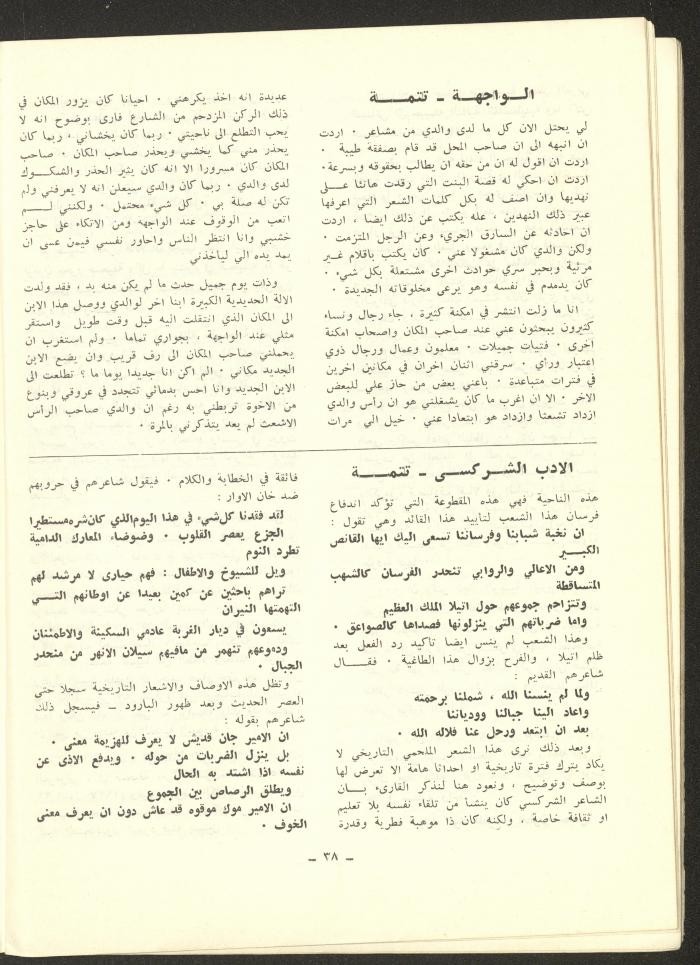 الــواجهـة ـ تتمــــة
لي يحتل الان كل ما لدى والدي من مشاعر ٠ اردت
ان انبهه الى ان صاحب المحل قد قام بصفقة طيبة ٠
اردت ان اقول له ان من حقه ان يطالب بحقوقه وبسرعة٠
اردت ان احكي له قصة البنت التي رقدت هانئا علــى
نهديها وان اصف له بكل كلمات الشعر التي اعرفها
عبير ذلك النهدين ، عله يكتب عن ذلك ايضا ، اردت
ان احادثه عن السارق الجريء وعن الرجل المتزمت ٠
ولكن والدي كان مشغولا عني ٠ كان يكتب باقلام غــير
مرئية وبحبر سري حوادث اخرى مشتعلة بكل شيء ٠
كان يدمدم في نفسه وهو يرعى مخلوقاته الجديدة ٠
انا ما زلت انتشر في امكنة كثيرة ، جاء رجال ونساء
كثيرون يبحثون عني عند صاحب المكان واصحاب امكنة
اخرى ٠ فتيات جميلات ٠ معلمون وعمال ورجال ذوي
اعتبار ورأي ٠ سرقني اثنان اخران في مكانين اخرين
في فترات متباعدة ٠ باعني بعض من حاز علي للبعض
الاخر ٠ الا ان اغرب ما كان يشغلني هو ان رأس والدي
ازداد تشعثا وازداد هو ابتعادا عني ٠ خيل الي مرات
عديدة انه اخذ يكرهني ٠ احيانا كان يزور المكان في
ذلك الركن المزدحم من الشارع فارى بوضوح انه لا
يحب التطلع الى ناحيتي ٠ ربما كان يخشاني ، ربما كان
يحذر مني كما يخشى ويحذر صاحب المكان ٠ صاحب
المكان كان مسرورا الا انه كان يثير الحذر والشكــوك
لدى والدي ٠ ربما كان والدي سيعلن انه لا يعرفني ولم
تكن له صلة بي ٠ كل شيء محتمل ٠ ولكنني لـــم
اتعب من الوقوف عند الواجهة ومن الاتكاء على حاجز
خشبي وانا انتظر الناس واحاور نفسي فيمن عسى ان
يمد يده الي لياخذني
وذات يوم جميل حدث ما لم يكن منه بد ، فقد ولدت
الالة الحديدية الكبيرة ابنا اخر لوالدي ووصل هذا الابن
الى المكان الذي انتقلت اليه قبل وقت طويل واستقر
مثلي عند الواجهة ، بجواري تماما ٠ ولم استغرب ان
يحملني صاحب المكان الى رف قريب وان يضع الابن
الجديد مكاني ٠ الم اكن انا جديدا يوما ما ؟ تطلعت الى
الابن الجديد وانا احس بدمائي تتجدد في عروقي وبنوع
من الاخوة تربطني به رغم ان والدي صاحب الرأس
الاشعث لم يعد يتذكرني بالمرة ٠
الادب الشركسي ـ تتمــــة
هذه الناحية فهي هذه المقطوعة التي تؤكد اندفاع
فرسان هذا الشعب لتأييد هذا القائد وهي تقول :
ان نخبة شبابنا وفرساننا تسعى اليك ايها القانص
الكبــير
ومن الاعالي والروابي تنحدر الفرسان كالشهب
المتساقطة
وتتزاحم جموعهم حول اتيلا الملك العظيم
واما ضرباتهم التي ينزلونها فصداها كالصواعق ٠
وهذا الشعب لم ينس ايضا تاكيد رد الفعل بعد
ظلم اتيلا ، والفرح بزوال هذا الطاغية ٠ فقــــال
شاعرهم القديم :
ولما لم ينسنا الله ، شملنا برحمته
واعاد الينا جبالنا وودياننا
بعد ان ابتعد ورحل عنا فلاله الله ٠
وبعد ذلك نرى هذا الشعر الملحمي التاريخي لا
يكاد يترك فترة تاريخية او احداثا هامة الا تعرض لها
بوصف وتوضيح ، ونعود هنا لنذكر القارىء بــان
الشاعر الشركسي كان ينشأ من تلقاء نفسه بلا تعليم
او ثقافة خاصة ، ولكنه كان ذا موهبة فطرية وقدرة
فائقة في الخطابة والكلام ٠ فيقول شاعرهم في حروبهم
ضد خان الاوار :
لقد فقدنا كل شيء في هذا اليوم الذي كان شره مستطيرا
الجزع يعصر القلوب ٠ وضوضاء المعارك الدامية
تطرد النوم
ويل للشيوخ والاطفال : فهم حيارى لا مرشد لهم
تراهم باحثين عن كمين بعيدا عن اوطانهم التــــي
التهمتها النيران
يسعون في ديار الغربة عادمي السكينة والاطمئنان
ودموعهم تنهمر من مافيهم سيلان الانهر من منحدر
الجبال ٠
وتظل هذه الاوصاف والاشعار التاريخية سجلا حتى
العصر الحديث وبعد ظهور البارود ـ فيسجل ذلك
شاعرهم بقوله :
ان الامير جان قديش لا يعرف للهزيمة معنى ٠
بل ينزل الضربات من حوله ٠ ويدفع الاذى عن
نفسه اذا اشتد به الحال
ويطلق الرصاص بين الجموع
ان الامير موك موقوه قد عاش دون ان يعرف معنى
الخوف ٠
ـ ٣٨ ـ